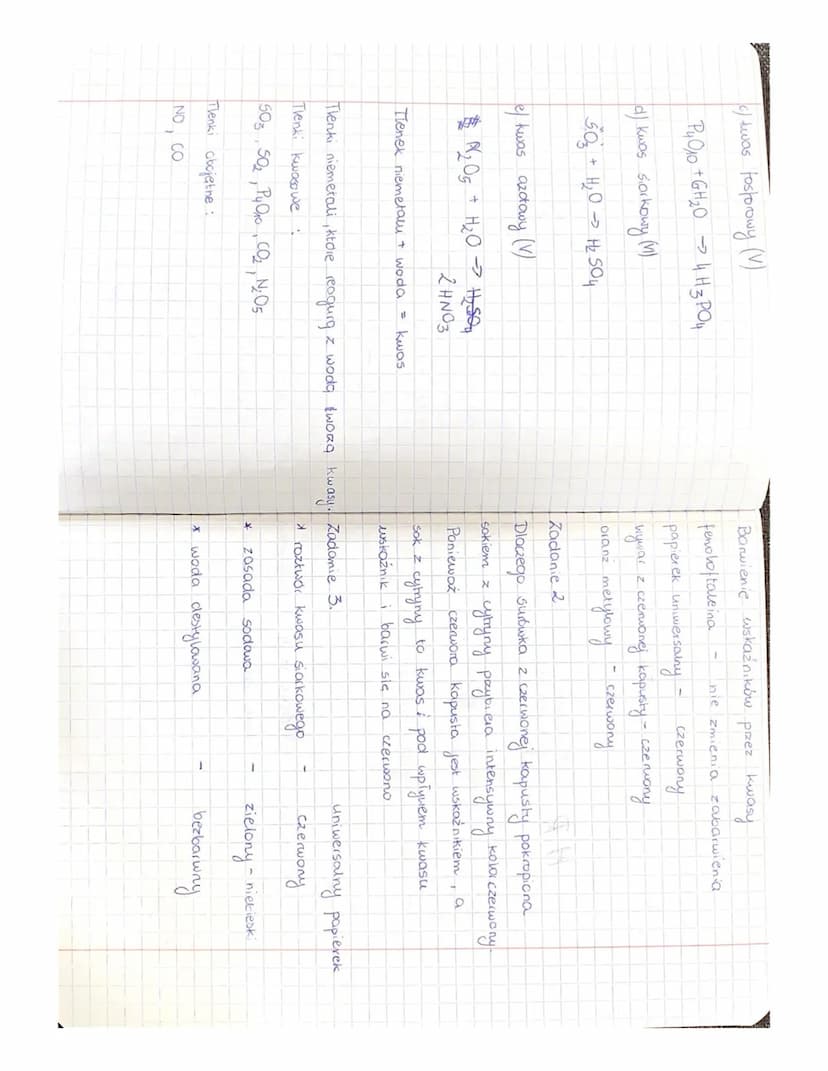 c) kwas fosforowy (V)
P4O10 + 6H2O → 4H3PO4
d) kwas siarkowy (VI)
SO3 + H2O → H2SO4
e) kwas azotowy (V)
N2O5 + H2O → H2SO4
2HNO3
Tlenek niemetalu + woda = kwas
Tlenki niemetali, które reagują z wodą tworzą kwasy.
Tlenki kwasowe :
SO3, SO2, P4O10, CO2, N2O5
Tlenki obojętne :
NO, CO
Barwienie wskaźników przez kwasy
fenoloftaleina - nie zmienia zabarwienia
papierek uniwersalny - czerwony
wywar z czerwonej kapusty - czerwony
oranż metylowy - czerwony
Zadanie 2
Dlaczego surówka z czerwonej kapusty pokropiona
sokiem z cytryny przybiera intensywny kolor czerwony.
Ponieważ czerwona kapusta jest wskaźnikiem, a
sok z cytryny to kwas i pod wpływem kwasu
wskaźnik i barwi się na czerwono
Zadanie 3. uniwersalny papierek
* roztwór kwasu siarkowego - czerwony
* zasada sodowa - zielony - niebieski
* woda destylowana - bezbarwny